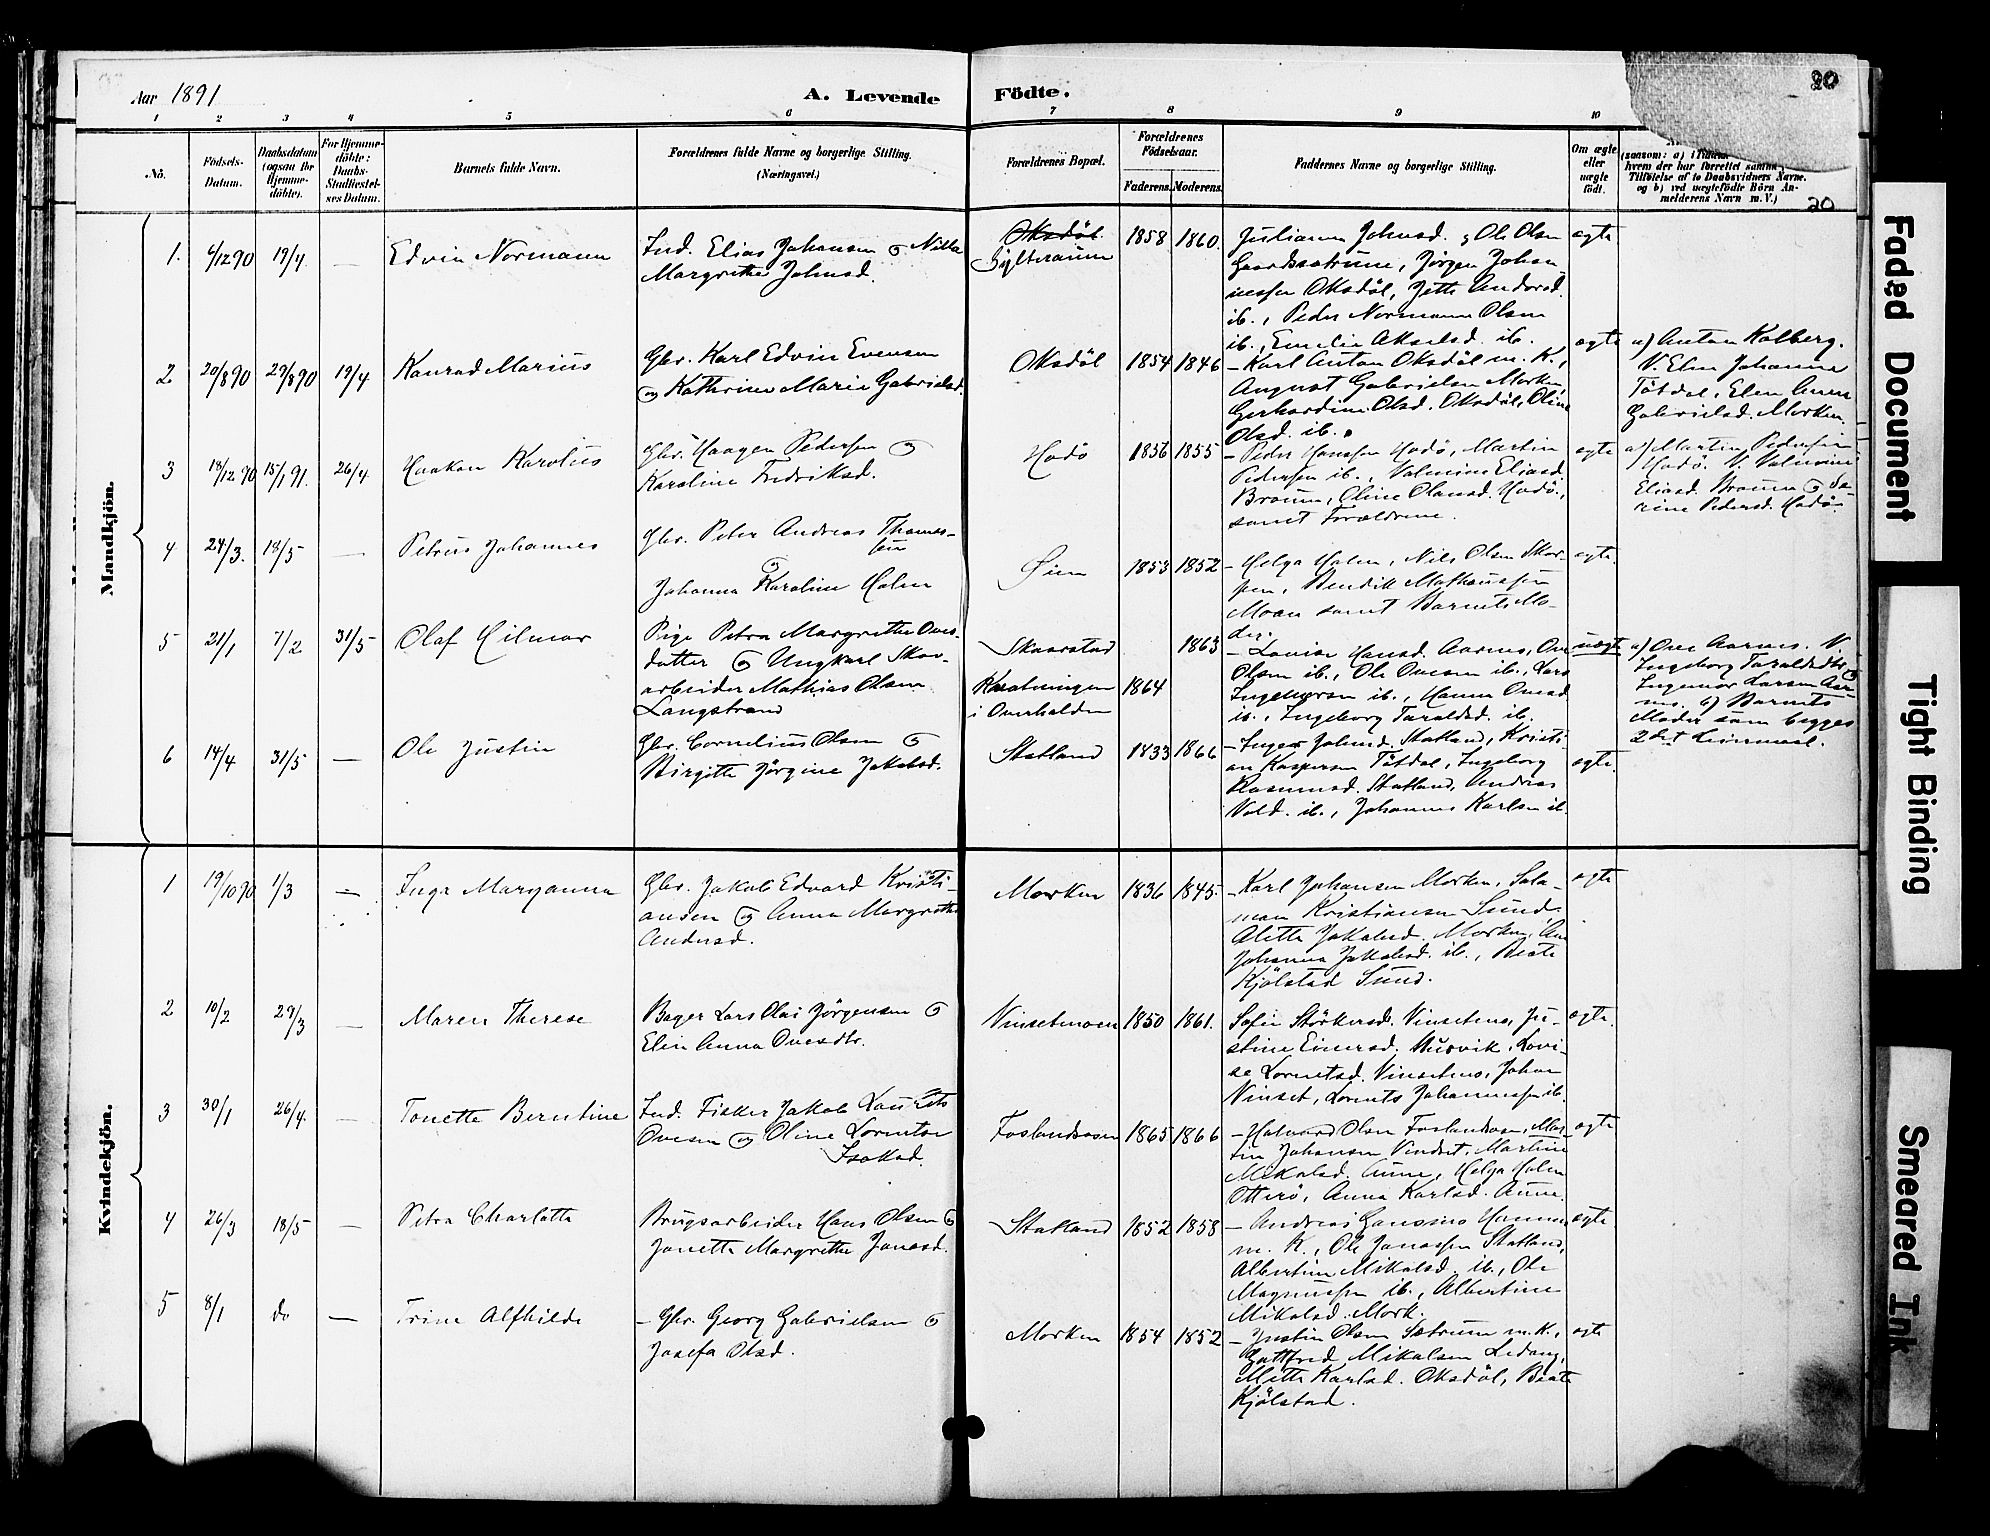 Aar 1891
A. Levende Födte.
20
1 2 3 4 5 6 7 8 9 10
No.
Födsels-Datum.
Daabsdatum (ogsaa for Hjemme-döbte).
For Hjemme-döbte: Daabs-Stadfæstel-ses Datum.
Barnets fulde Navn.
Forældrenes fulde Navne og borgerlige Stilling. (Næringsvei.)
Forældrenes Bopæl.
Forældrenes Födselsaar.
Faderens. Moderens.
Faddernes Navne og borgerlige Stilling.
Om ægte eller uægte födt.
(saasom: a) i
hvem der har forrettet samme
Tilföielse af to Daabsvidners Navne.
og b) ved uægtefödte Börn An-
melderens Navn m. V.)
20
Mandkjön.
1. 4/12 90 19/4 — Edvin Normann
Ind. Elias Johansen og
Margrethe Johnsd.
Oksdöl
Sylteraunn
1858 1860.
Julianna Johnsd. & Ole Olsen
Gaardssætrune, Jörgen Johan
nessen Oksdöl, Jette Andorsd.
ib., Peder Normann Olsen
ib., Emelie Akselsd. ib.
ægte
2 20/8 90 29/8 90 19/4 Konrad Marius
Gbr. Karl Edvin Evensen
og Kathrine Marie Gabrielsd.
Oksdöl
1854 1846
— Karl Anton Oksdöl m. K.,
August Gabrielsen Morken,
Gerhardine Olsd. Oksdöl, Oline
Olsd. ib.
ægte
a) Anton Kolberg.
V. Elen Johanna
Tötdal, Elen Anna
Gabrielsd. Morken.
3 18/12 90 15/1 91. 26/4 Haakon Karolius
Gbr. Haagen Pedersen og
Karoline Fredriksd.
Hodö
1856 1855
— Peder Hansen Hodö, Martin
Pedersen ib., Valmine Eliasd.
Braunn, Oline Olausd. Hodö,
samt Forældrene.
ægte
a) Martin Pedersen
Hodö. V. Valmine
Eliasd. Braunn og Se-
rine Pedersd. Hodö.
4 24/3. 18/5 — Petrus Johannes
Gbr. Peter Andreas Thomes-
sen
og
Johanna Karoline Holm
Öien
1853 1852
— Helga Holm, Nils Olsen Skor-
pen, Bendik Matheussen
Moan samt Barnets Mo-
der.
ægte.
5 21/1 7/2 31/5 Olaf Hilmar
Pige Petra Margrethe Oves-
datter og Ungkarl Skov-
arbeider Mathias Olsen
Langstrand
Skaarstad
i Overhalden
1864 1863
— Lovise Hansd. Aarnes, Ove
Olsen ib., Ole Ovesen ib., Lars
Ingebor­sen ib., Hanna Ovesd.
ib., Ingeborg Taraldsd. ib.
uægte
a) Ove Aarnes. V.
Ingeborg Taraldsdtr. og
Ingemar Larsen Aar-
nes. b) Barnets
Moder som begges
2det Leiermaal.
6 14/4 31/5 — Ole Justin
Gbr. Cornelius Olsen og
Birgitte Jörgine Jakobsd.
Statland
1833 1866
— Inger Johnsd. Statland, Kristi-
an Kaspersen Tötdal, Ingeborg
Rasmusd. Statland, Andreas
Vold. ib., Johannes Karlsen ib.
ægte.
Kvindekjön.
1 19/10 90 1/3 — Inga Maryanna
Gbr. Jakob Edvard Kristi-
ansen og Anna Margrethe
Andersd.
Morken
1836 1845.
— Karl Johansen Morken, Sala-
mon Kristiansen Sund,
Alette Jakobsd. Morken, Ane
Johanna Jakobsd. ib., Beate
Kjölstad Sund.
ægte
2 10/2 29/3 — Maren Therese
Bager Lars Olai Jörgensen og
Elen Anna Ovesdtr.
Vinsetmoen
1850 1861.
Sofie Störkersd. Vinsetmo, Ju-
stine Einersd. Husvik, Lovi-
se Lorentsd. Vinsetmo, Johan
Vinset, Lorents Johannessen ib.
ægte.
3 30/1 26/4. — Tonette Berntine
Ind. Fisker Jakob Laurits
Ovesen og Oline Lorentse
Isaksd.
Foslandsosen
1865 1866
— Halvard Olsen Foslandsosen, Mar-
tin Johansen Vindset. Martine
Mikalsd. Aune, Helga Holm
Otterö, Anna Karlsd. Aune.
ægte
4 26/3 18/5 — Petra Charlotte
Brugsarbeider Hans Olsen og
Jonette Margrethe Jonasd.
Statland
1852 1858
— Andreas Gansmo
m. K., Ole Jonassen Statland,
Albertine Mikalsd. ib., Ole
Magnussen ib., Albertine
Mikalsd. Mork.
ægte.
5 8/1 do — Trine Alfhilde
— Gbr. Georg Gabrielsen og
Josefa Olsd.
Morken
1854 1852
— Justin Olsen Sætrunn m. K.,
Gottfred Mikalsen Ledang,
Mette Karlsd. Oksdöl, Beate
Kjölstad.
ægte
Faded Document
Tight Binding
Smeared Ink